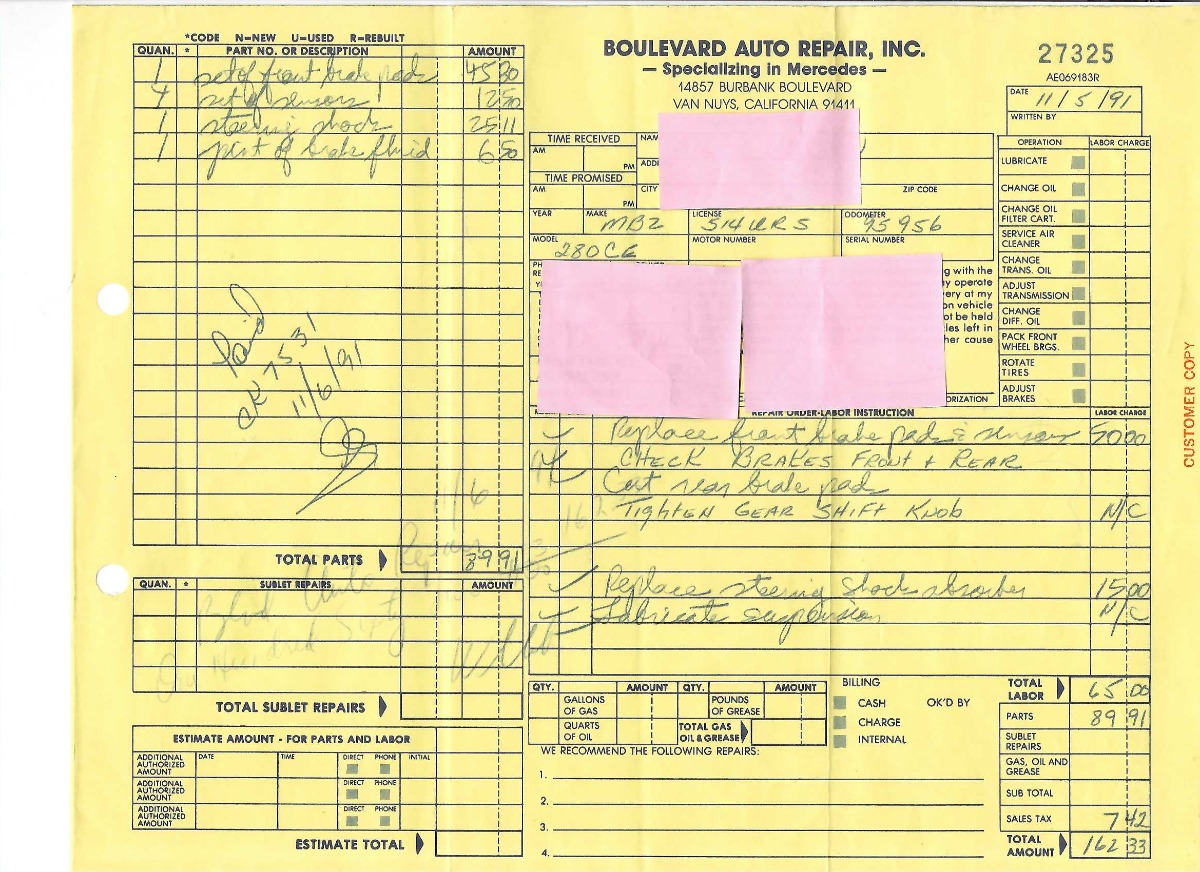 *CODE N=NEW U=USED R=REBUILT
QUAN. * PART NO. OR DESCRIPTION AMOUNT
1 set of front brake pads 45 30
set of sensors
1 steering shock 25 11
1 pint of brake fluid 6 50
Paid
CK 7531
11/6/91
TOTAL PARTS 89 91
QUAN. * SUBLET REPAIRS AMOUNT
Blvd Auto Repair
One Hundred Sixty
TOTAL SUBLET REPAIRS
ESTIMATE AMOUNT - FOR PARTS AND LABOR
ADDITIONAL AUTHORIZED AMOUNT DATE TIME DIRECT PHONE INITIAL
ADDITIONAL AUTHORIZED AMOUNT DIRECT PHONE
ADDITIONAL AUTHORIZED AMOUNT DIRECT PHONE
ESTIMATE TOTAL
BOULEVARD AUTO REPAIR, INC.
— Specializing in Mercedes —
14857 BURBANK BOULEVARD
VAN NUYS, CALIFORNIA 91411
27325
AE069183R
DATE 11/5/91
WRITTEN BY
TIME RECEIVED
AM PM
TIME PROMISED
AM PM
CITY ZIP CODE
YEAR MAKE LICENSE 514URS ODOMETER 95956
MODEL 280CE MOTOR NUMBER SERIAL NUMBER
g with the
operate
ery at my
on vehicle
ot be held
les left in
her cause
ORIZATION
OPERATION LABOR CHARGE
LUBRICATE
CHANGE OIL
CHANGE OIL FILTER CART.
SERVICE AIR CLEANER
CHANGE TRANS. OIL
ADJUST TRANSMISSION
CHANGE DIFF. OIL
PACK FRONT WHEEL BRGS.
ROTATE TIRES
ADJUST BRAKES
REPAIR ORDER-LABOR INSTRUCTION LABOR CHARGE
Replace front brake pads & sensors 50 00
CHECK BRAKES FRONT + REAR
rear brake pads
TIGHTEN GEAR SHIFT KNOB N/C
Replace steering shock absorber 15 00
Lubricate suspension N/C
QTY. AMOUNT QTY. AMOUNT
GALLONS OF GAS POUNDS OF GREASE
QUARTS OF OIL TOTAL GAS OIL & GREASE
BILLING
CASH OK'D BY
CHARGE
INTERNAL
WE RECOMMEND THE FOLLOWING REPAIRS:
1.
2.
3.
4.
TOTAL LABOR 65 00
PARTS 89 91
SUBLET REPAIRS
GAS, OIL AND GREASE
SUB TOTAL
SALES TAX 7 42
TOTAL AMOUNT 162 33
CUSTOMER COPY